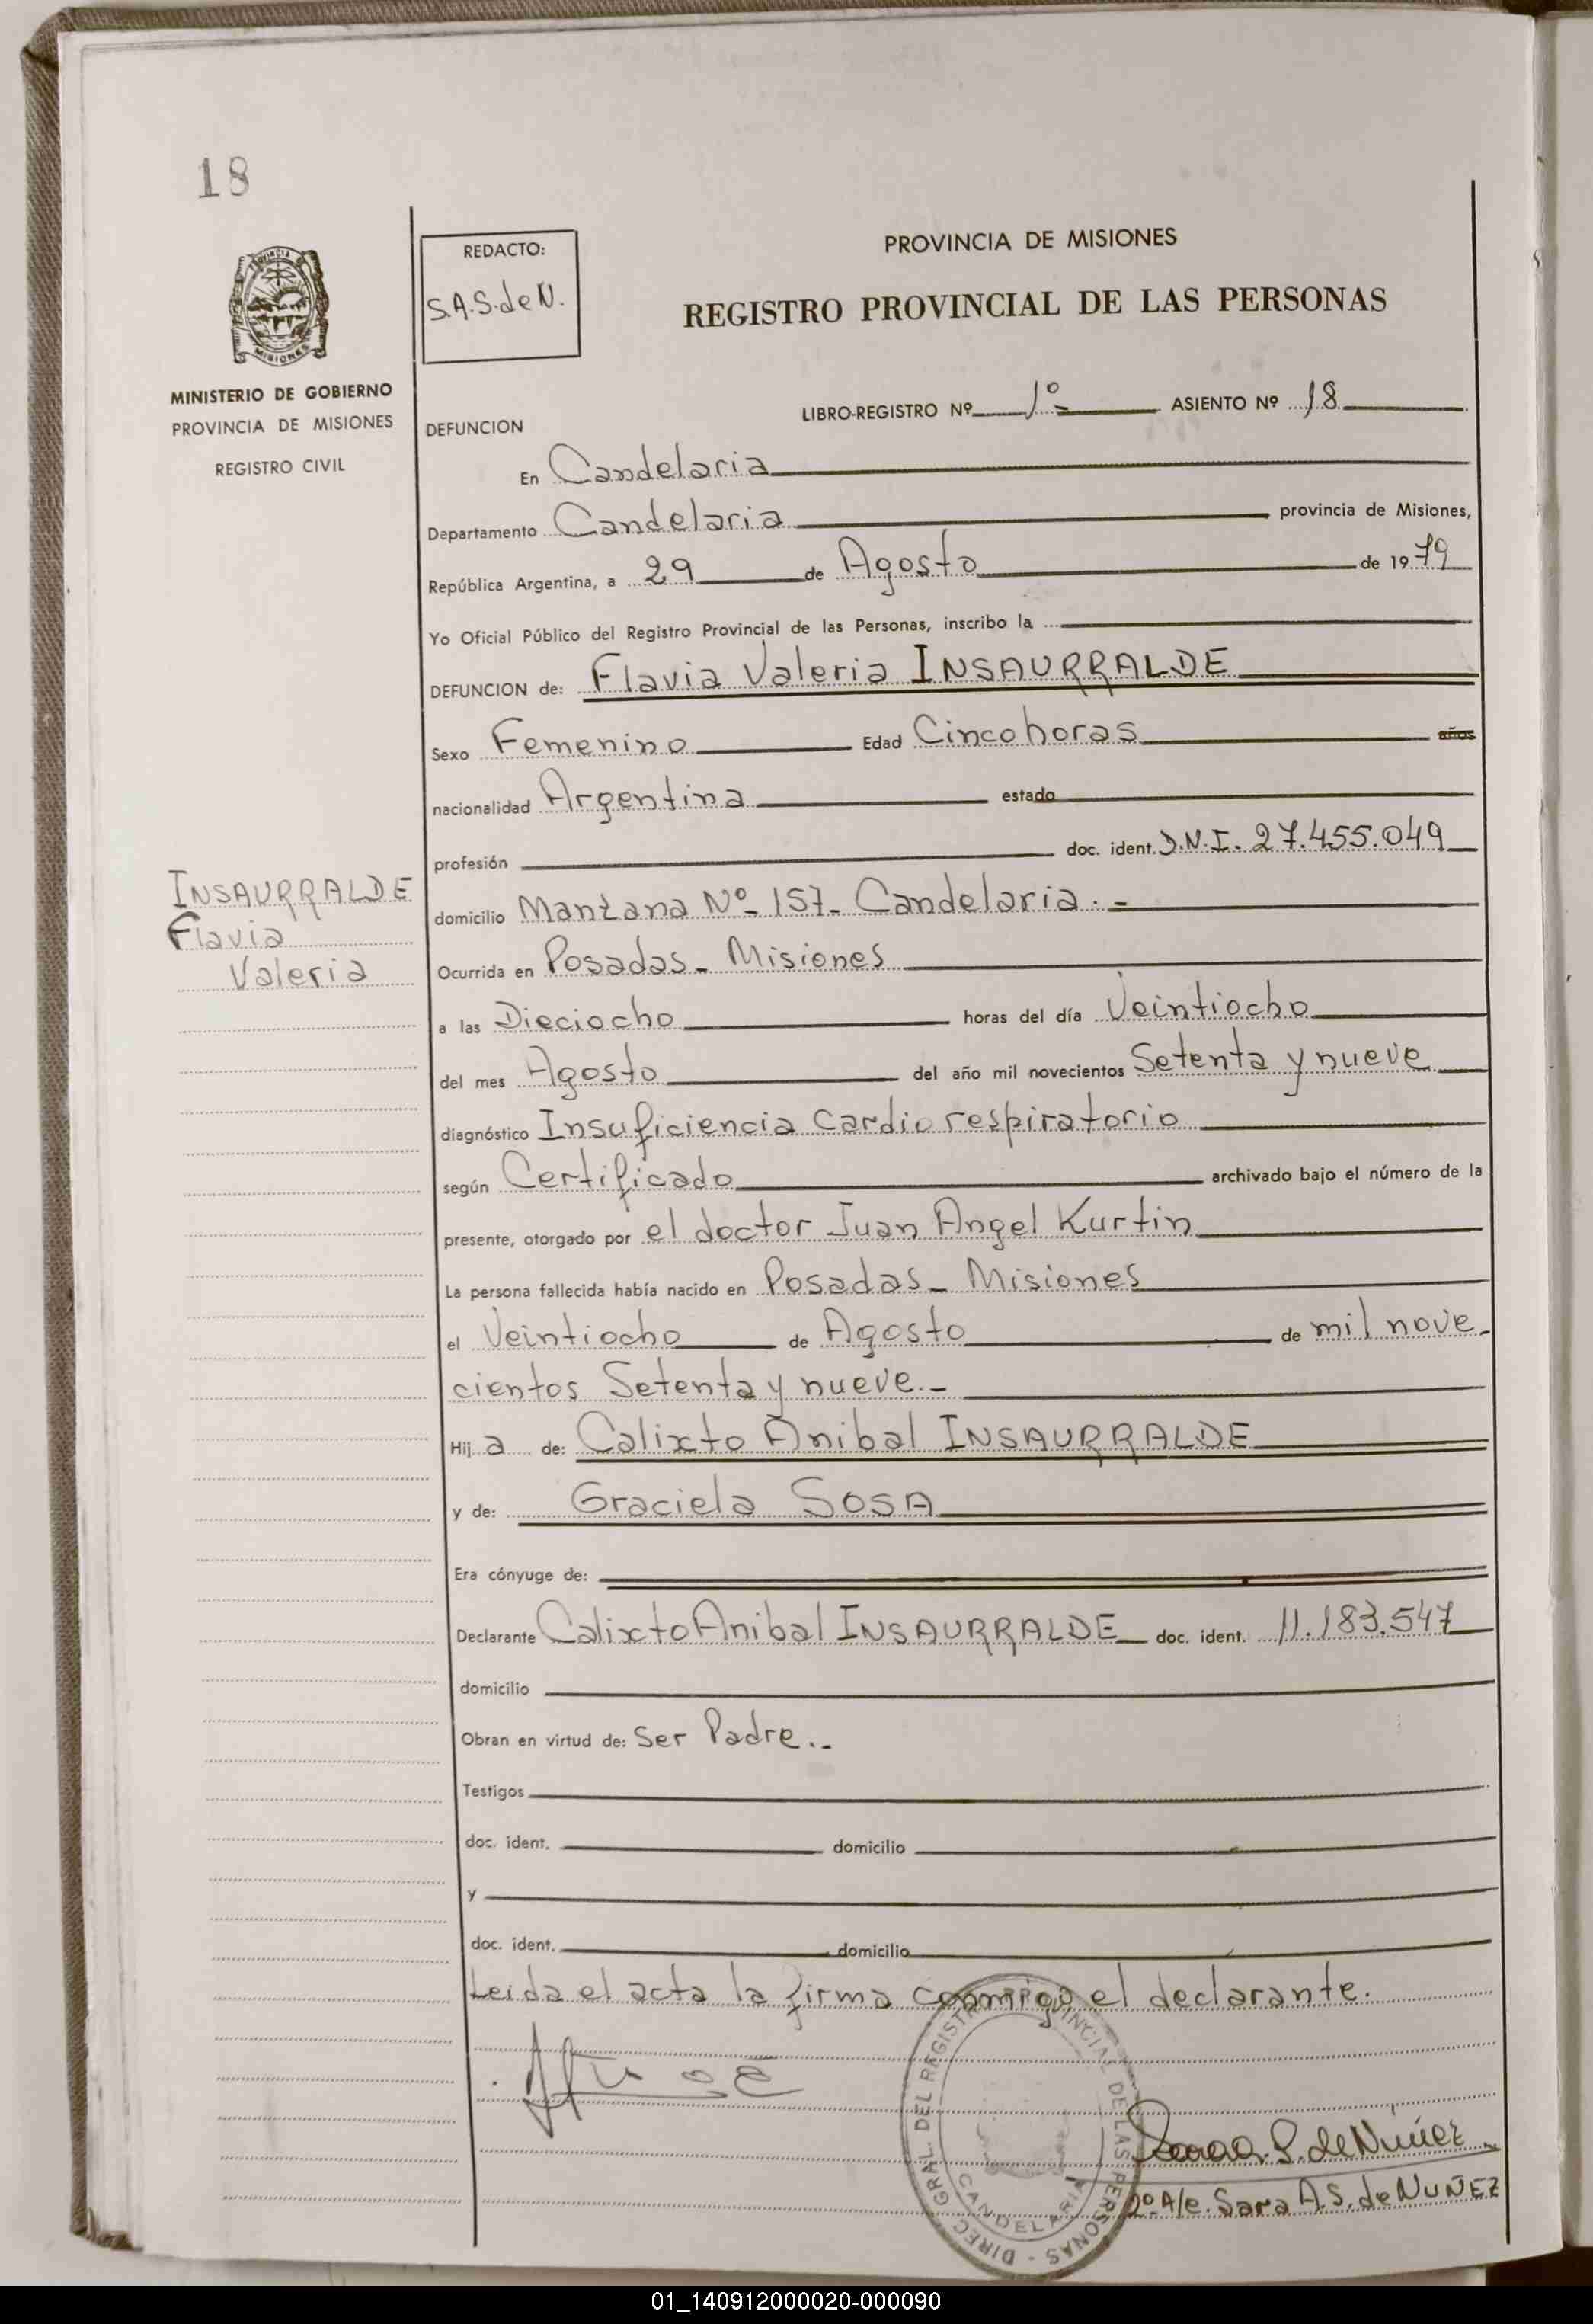 18
PROVINCIA DE
MISIONES
MINISTERIO DE GOBIERNO
PROVINCIA DE MISIONES
REGISTRO CIVIL
REDACTO:
S.A.S.deN.
PROVINCIA DE MISIONES
REGISTRO PROVINCIAL DE LAS PERSONAS
LIBRO-REGISTRO Nº 1º= ASIENTO Nº 18
DEFUNCION
En Candelaria
Departamento Candelaria provincia de Misiones,
República Argentina, a 29 de Agosto de 1979
Yo Oficial Público del Registro Provincial de las Personas, inscribo la
DEFUNCION de: Flavia Valeria INSAURRALDE
Sexo Femenino Edad Cinco horas años
nacionalidad Argentina estado
profesión doc. ident. D.N.I. 27.455.049
INSAURRALDE
Flavia
Valeria
domicilio Manzana Nº 157- Candelaria.-
Ocurrida en Posadas - Misiones
a las Dieciocho horas del día Veintiocho
del mes Agosto del año mil novecientos Setenta y nueve
diagnóstico Insuficiencia cardio respiratorio
según Certificado archivado bajo el número de la
presente, otorgado por el doctor Juan Angel Kurtin
La persona fallecida había nacido en Posadas - Misiones
el Veintiocho de Agosto de mil nove-
cientos Setenta y nueve.-
Hija de: Calixto Anibal INSAURRALDE
y de: Graciela SOSA
Era cónyuge de:
Declarante Calixto Anibal INSAURRALDE doc. ident. 11.183.547
domicilio
Obran en virtud de: Ser Padre.-
Testigos
doc. ident. domicilio
y
doc. ident. domicilio
Leida el acta la firma conmigo el declarante.
DIREC. GRAL. DEL REGISTRO PROVINCIAL DE LAS PERSONAS -
CANDELARIA
Sara A. S. de Núñez
2º A/e. Sara A.S. de NUÑEZ
01_140912000020-000090